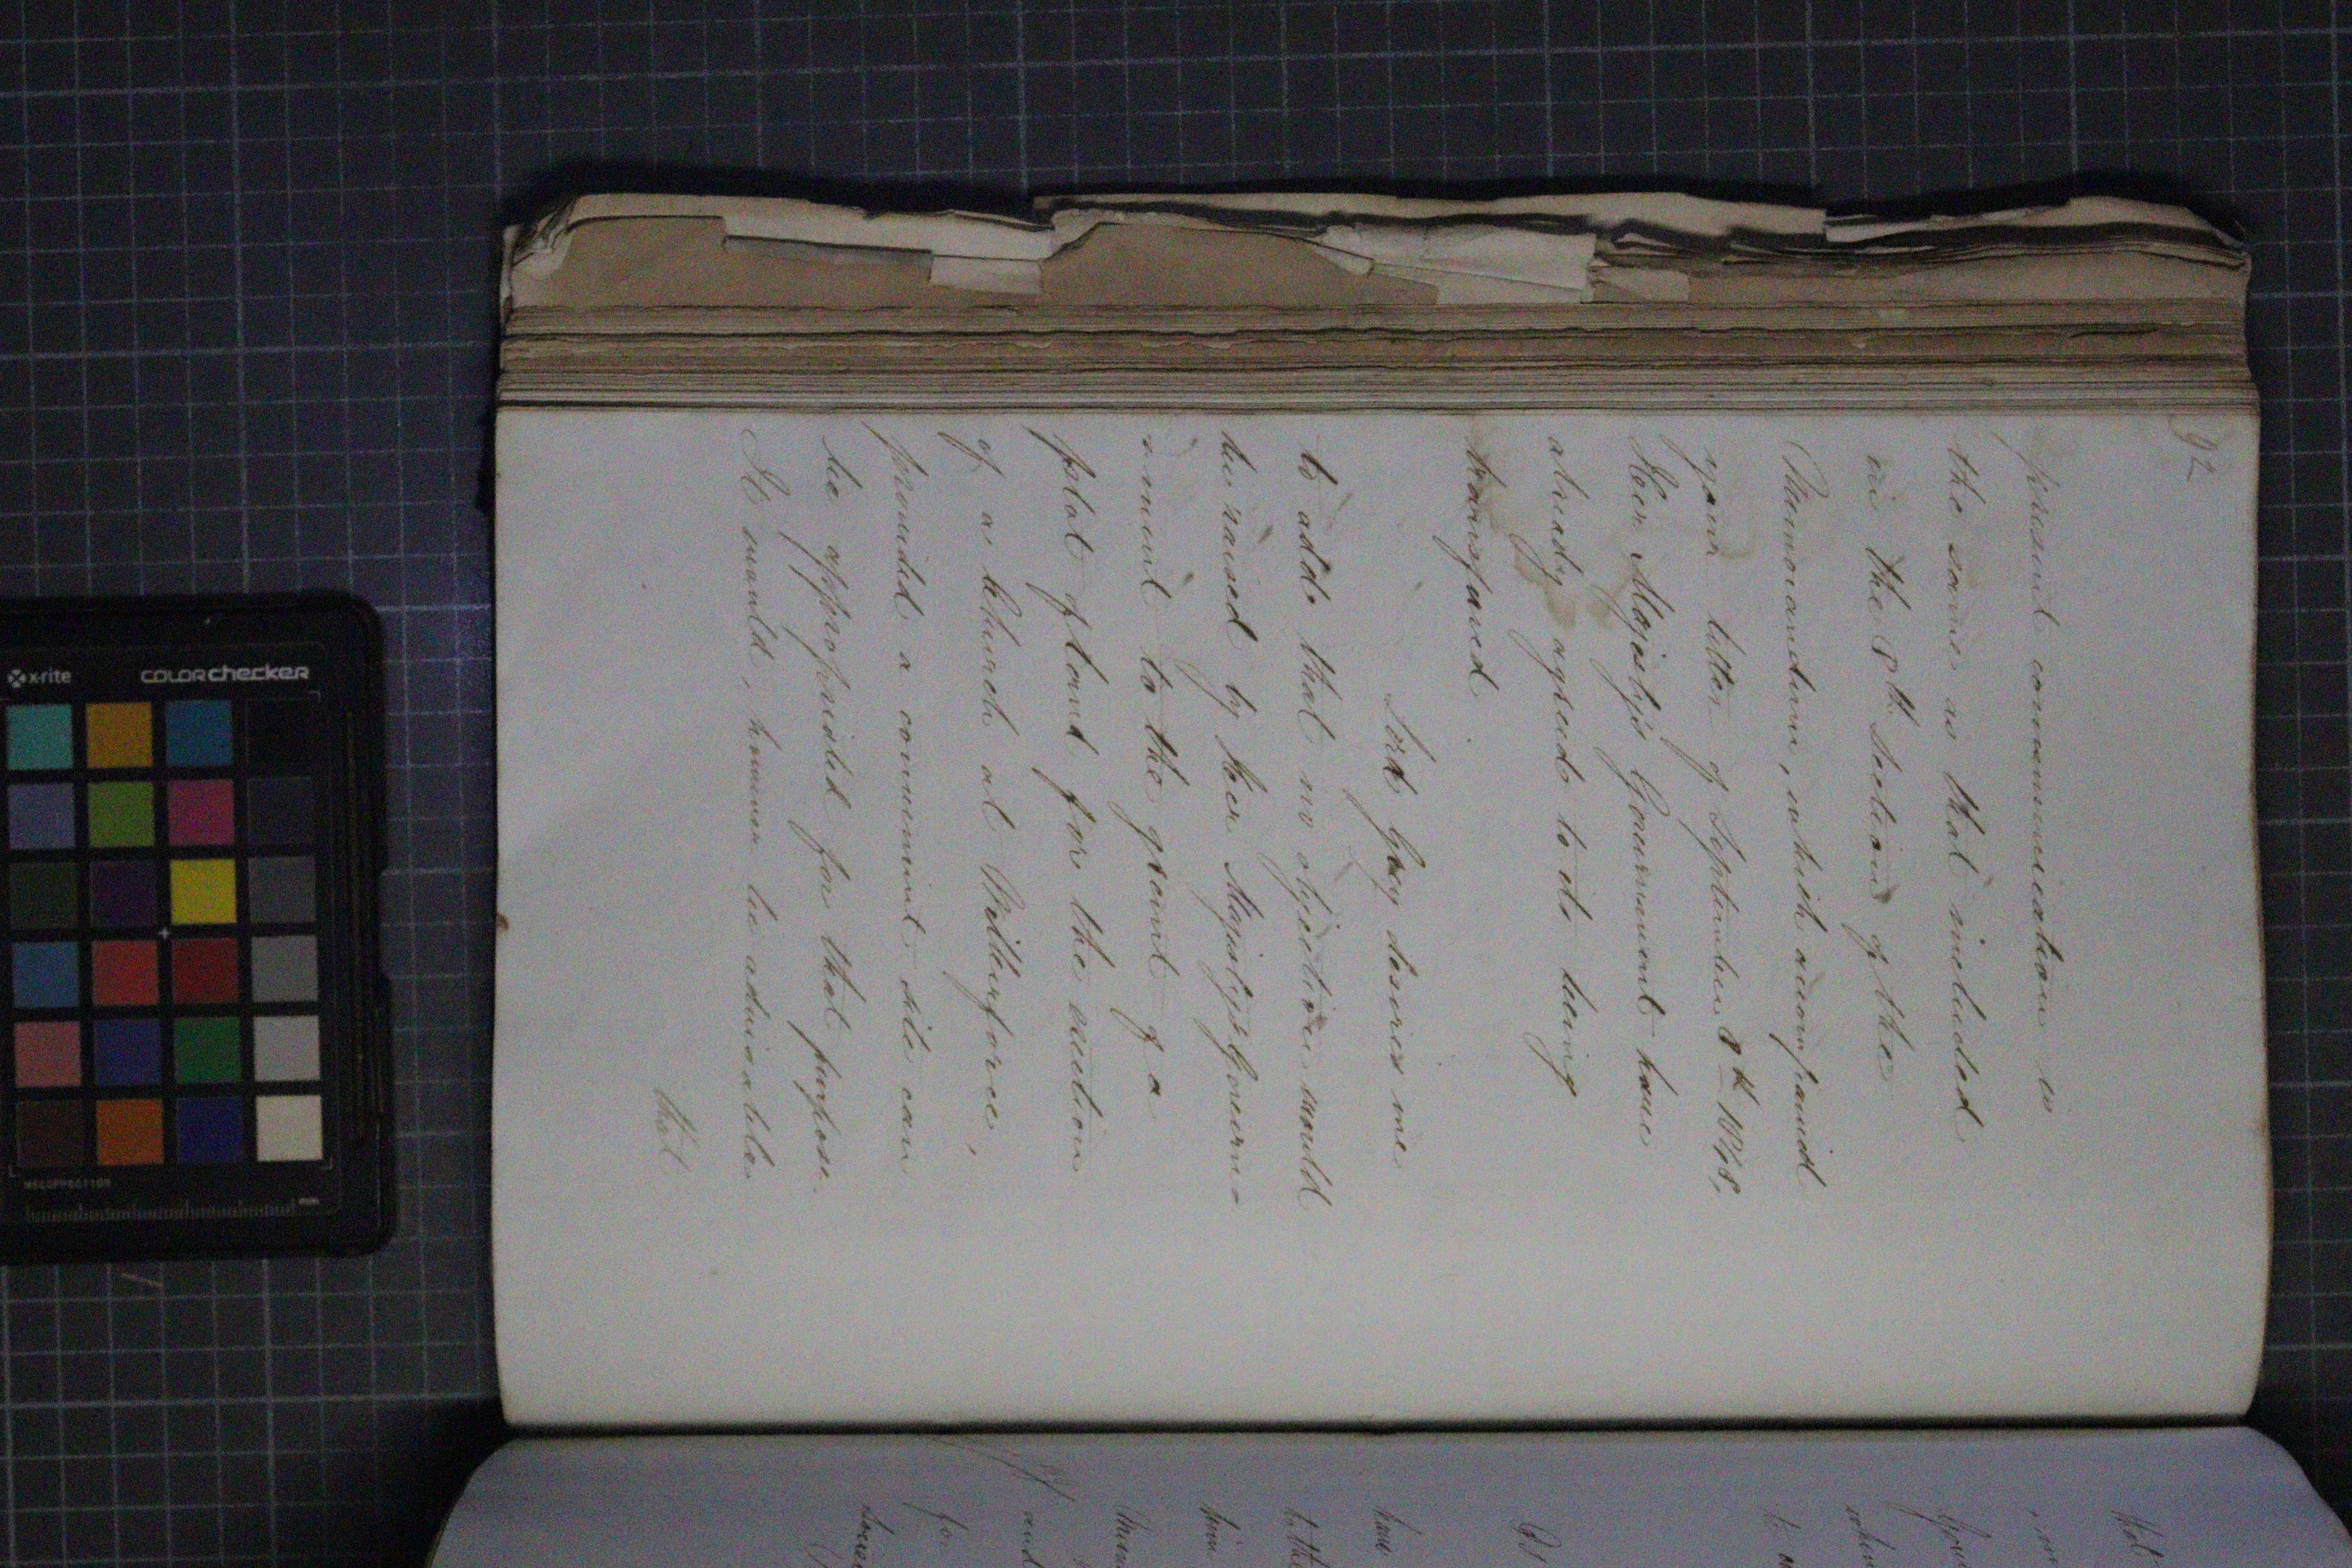 92
present communication is
the same as that included
in the 8th Section of the
Memorandum, which accompanied
your letter of September 8th 1848,
Her Majesty's Government have
already agreed to its being
transfered.
Lord Grey desires me
to add that no objection would
be raised by Her Majesty's Govern-
=ment to the grant of a
plot of land for the erection
of a Church at Wilberforce,
provided a convenient site can
be appropriated for that purpose.
It would, however be advisable
that
that
to
have
him
and
for
x-rite
colorchecker
mm